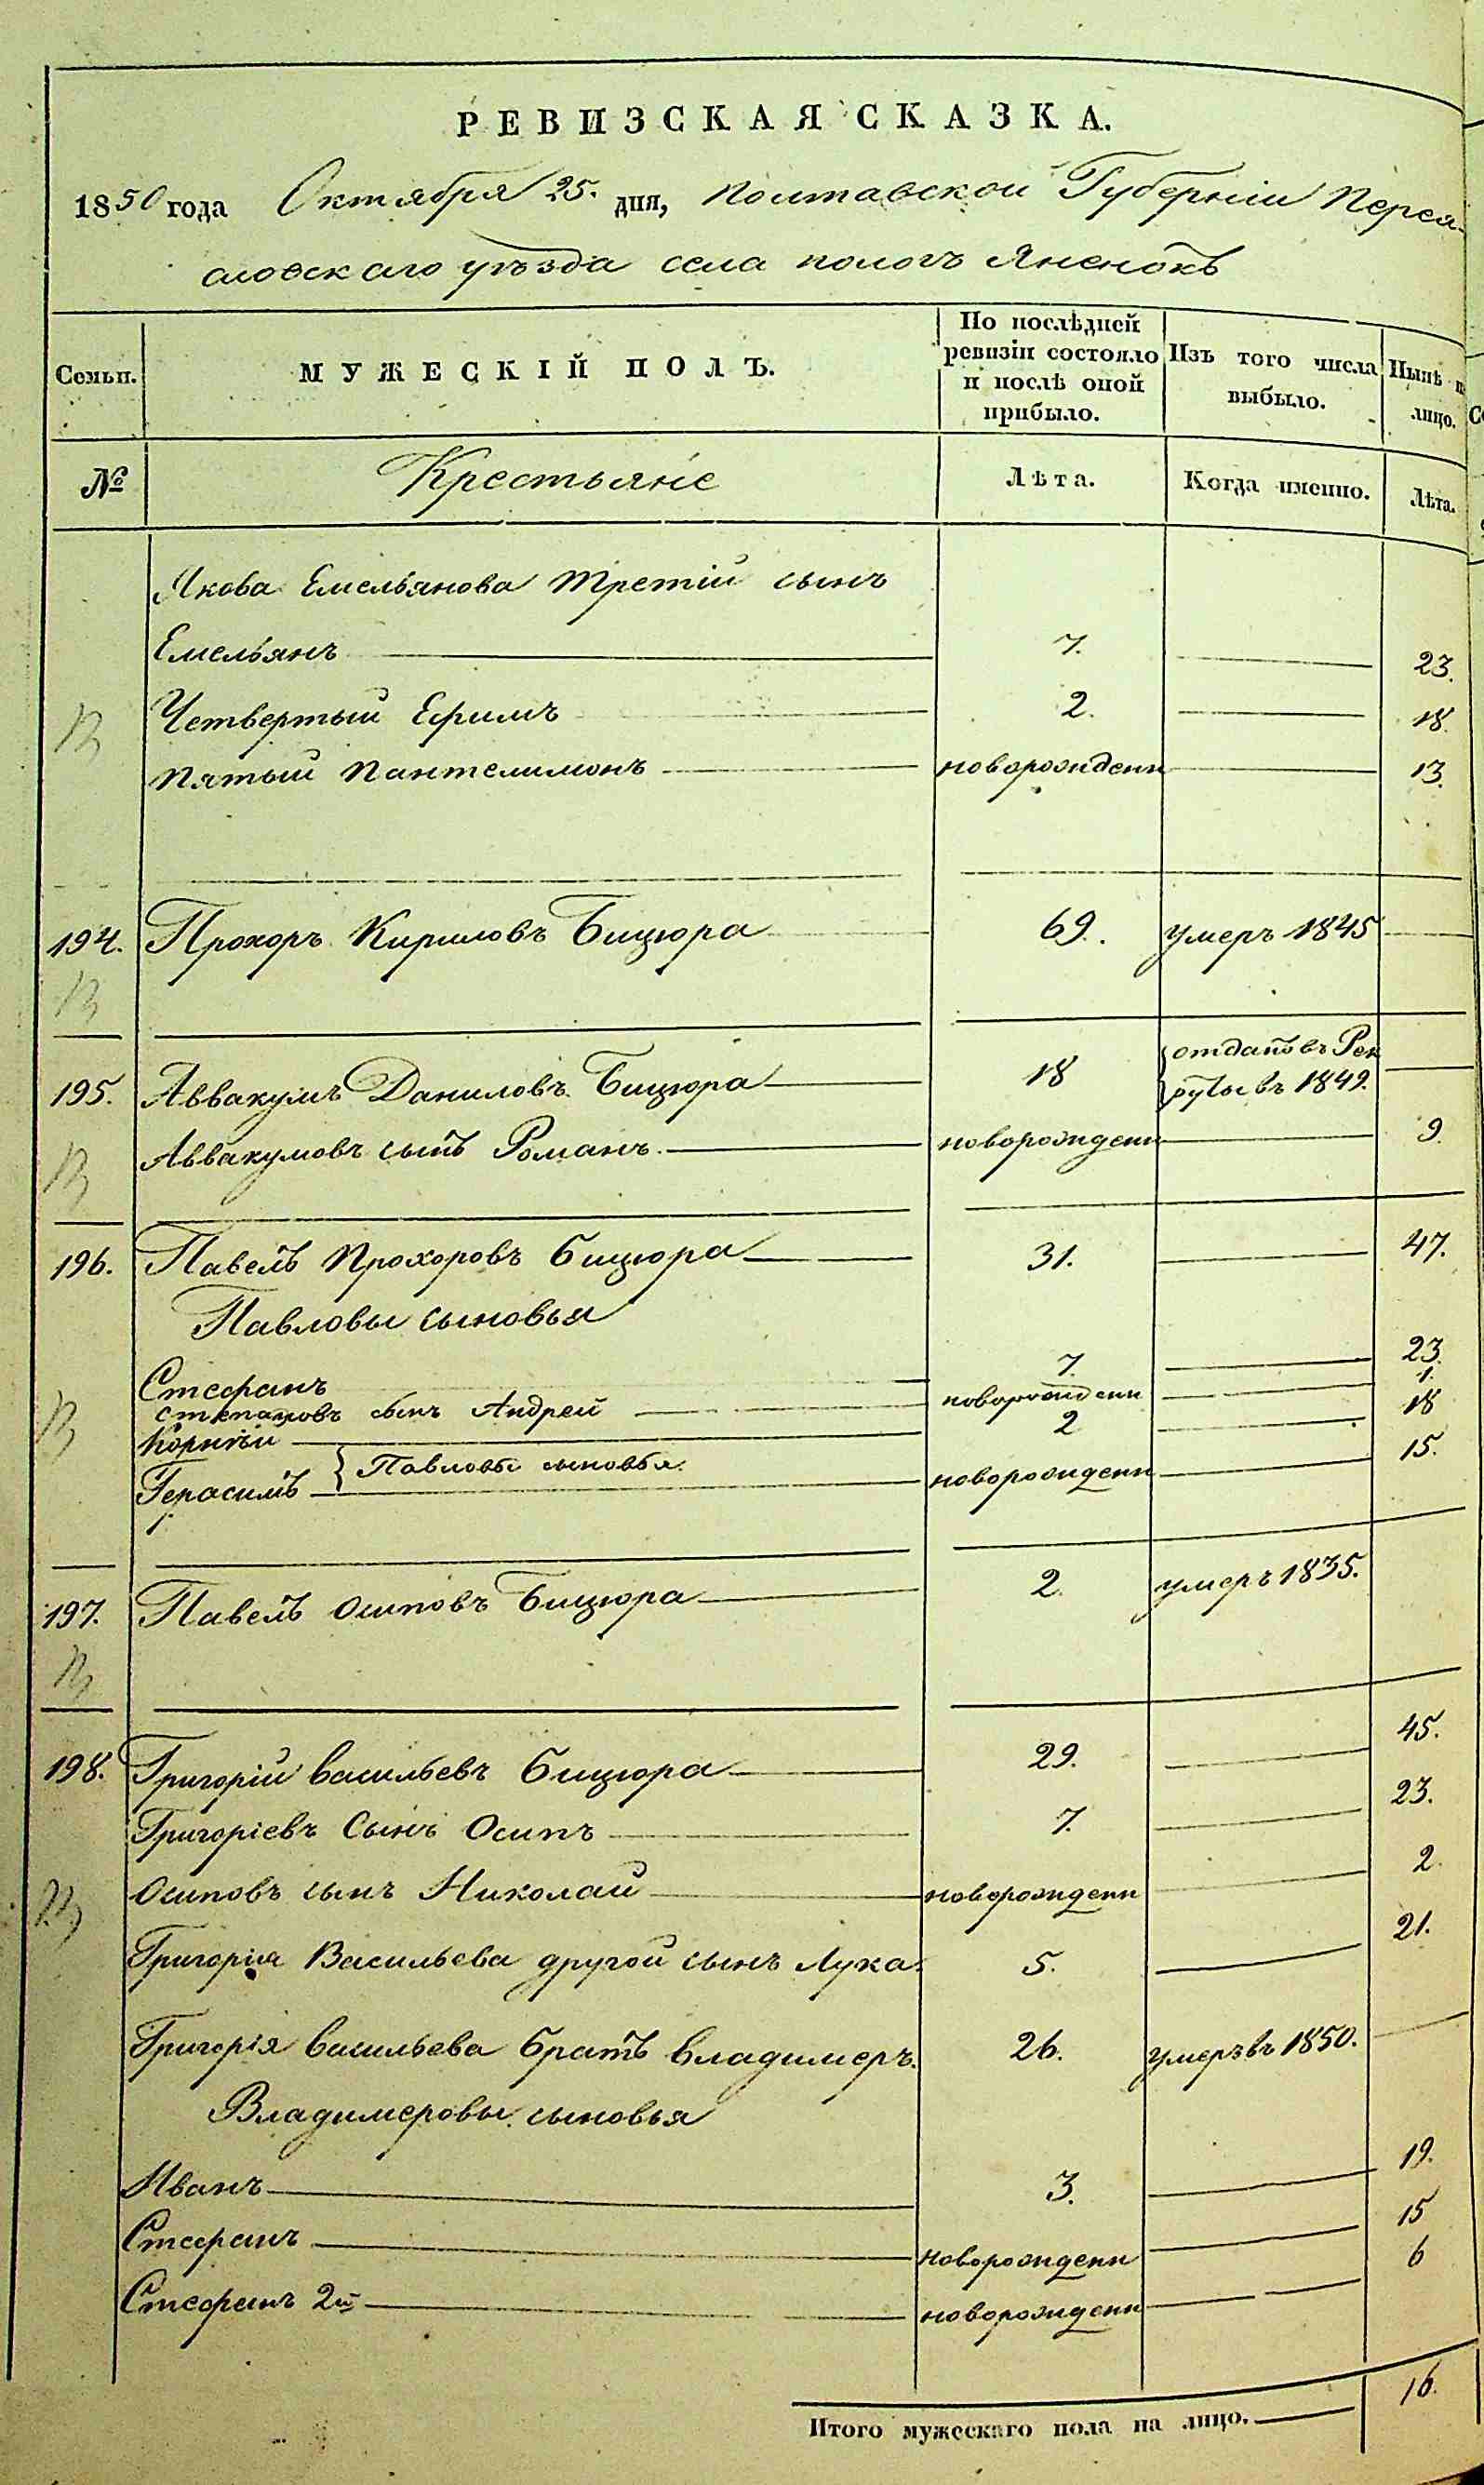 РЕВИЗСКАЯ СКАЗКА.
1850 года Октября 25. дня, Полтавской Губерніи Перея-
словскаго уѣзда села пологъ Яненокъ
Семьи. МУЖЕСКІЙ ПОЛЪ. По послѣдней ревизіи состояло и послѣ оной прибыло. Изъ того числа выбыло. Нынѣ
лицо.
№ Крестьяне Лѣта. Когда именно. Лѣта.
Якова Емельянова третій сынъ
Емельянъ 7. 23.
Четвертый Ефимъ 2. 18.
Пятый Пантелимонъ новорожденн 13.
194. Прохоръ Кириловъ Бицюра 69. умеръ 1845
195. Аввакумъ Даниловъ Бицюра 18 отданъ въ Рек
руты въ 1849.
Аввакумовъ сынъ Романъ. новорожденн 9.
196. Павелъ Прохоровъ Бицюра 31. 47.
Павловы сыновья
Стефанъ 7. 23.
Степановъ сынъ Андрей новорожденн 1.
Корнѣй 2 18
Павловы сыновья.
Герасимъ новорожденн 15.
197. Павелъ Осиповъ Бицюра 2. умеръ 1835.
198. Григорій Васильевъ Бицюра 29. 45.
Григоріевъ Сынъ Осипъ 7. 23.
Осиповъ сынъ Николай новорожденн 2.
Григорія Васильева другой сынъ Лука. 5. 21.
Григорія Васильева братъ Владимеръ. 26. умеръ въ 1850.
Владимеровы сыновья
Иванъ 3. 19.
Стефанъ новорожденн 15
Стефанъ 2й новорожденн 6
Итого мужескаго пола на лицо. 16.